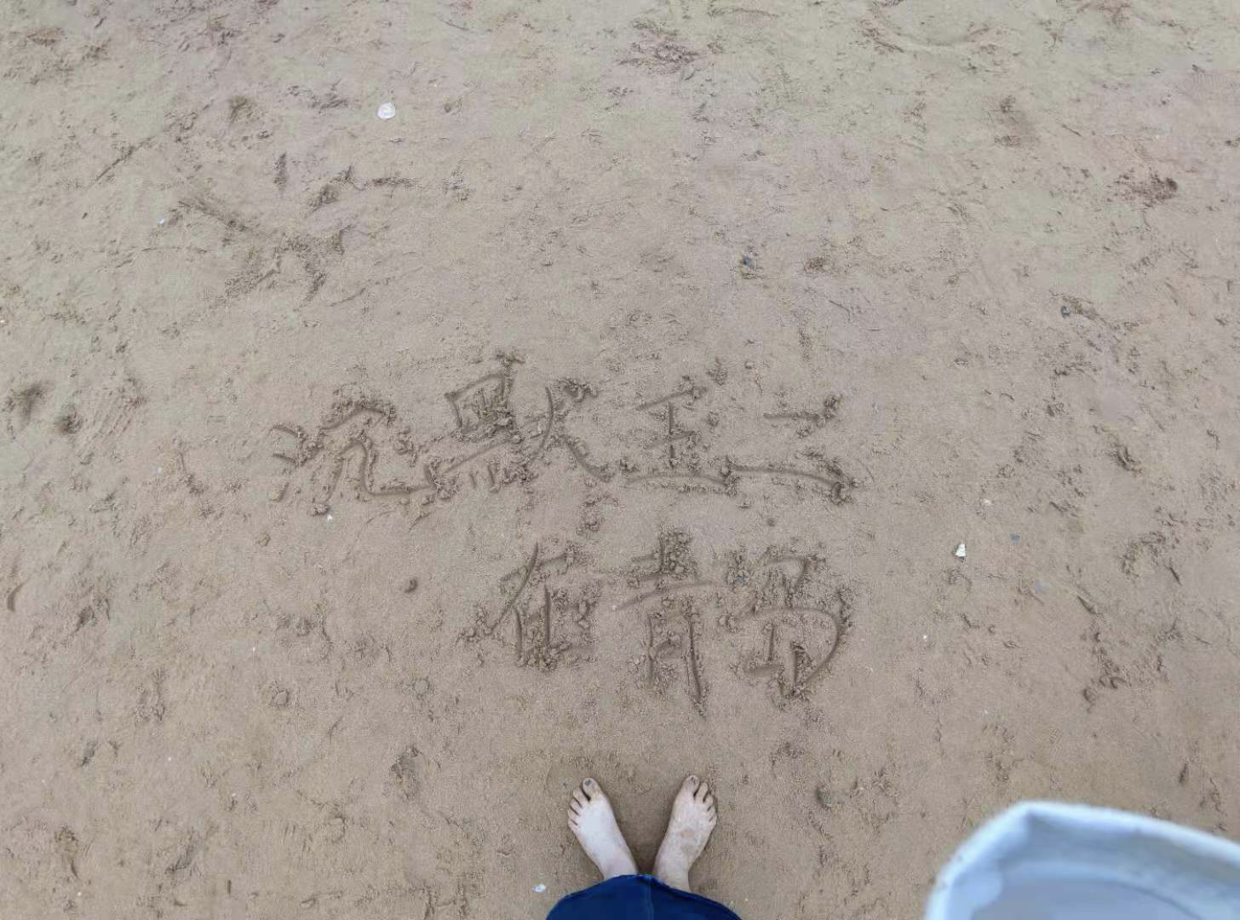 沉默王二
在青岛